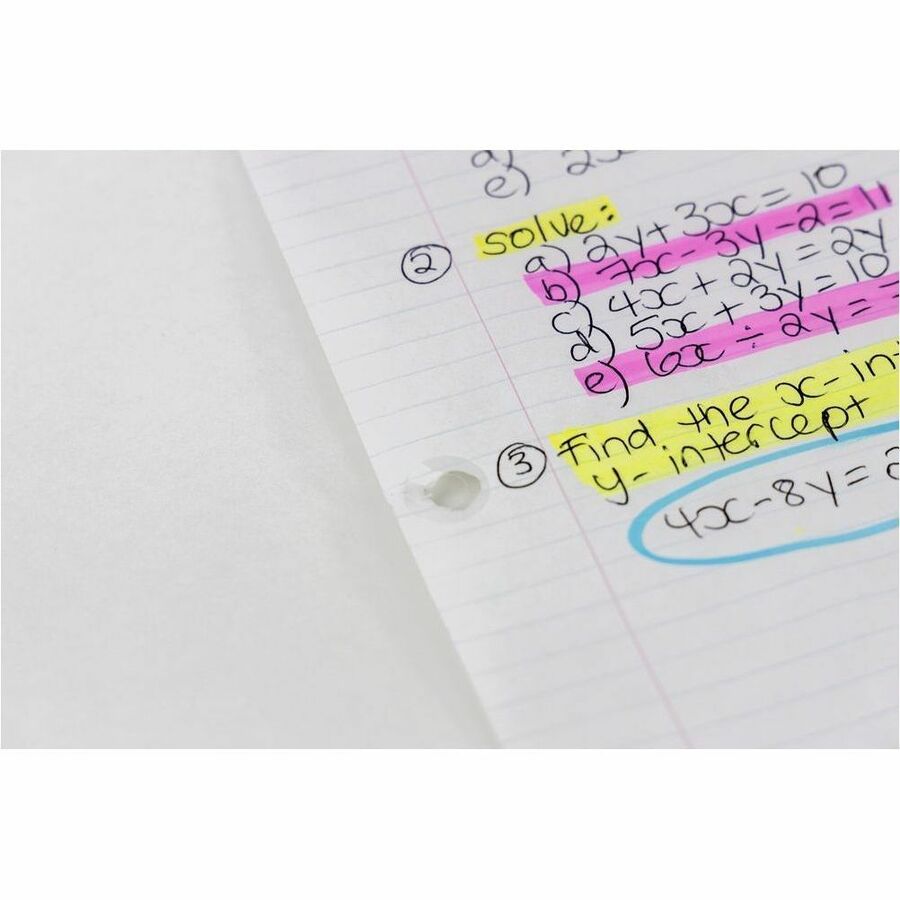 e) 2x
② solve:
a) 2y + 3x = 10
b) 7x - 3y - 2 = 11
c) 4x + 2y = 2y
d) 5x + 3y = 10
e) 6x ÷ 2y =
③ Find the x-in
y-intercept
4x - 8y = 2